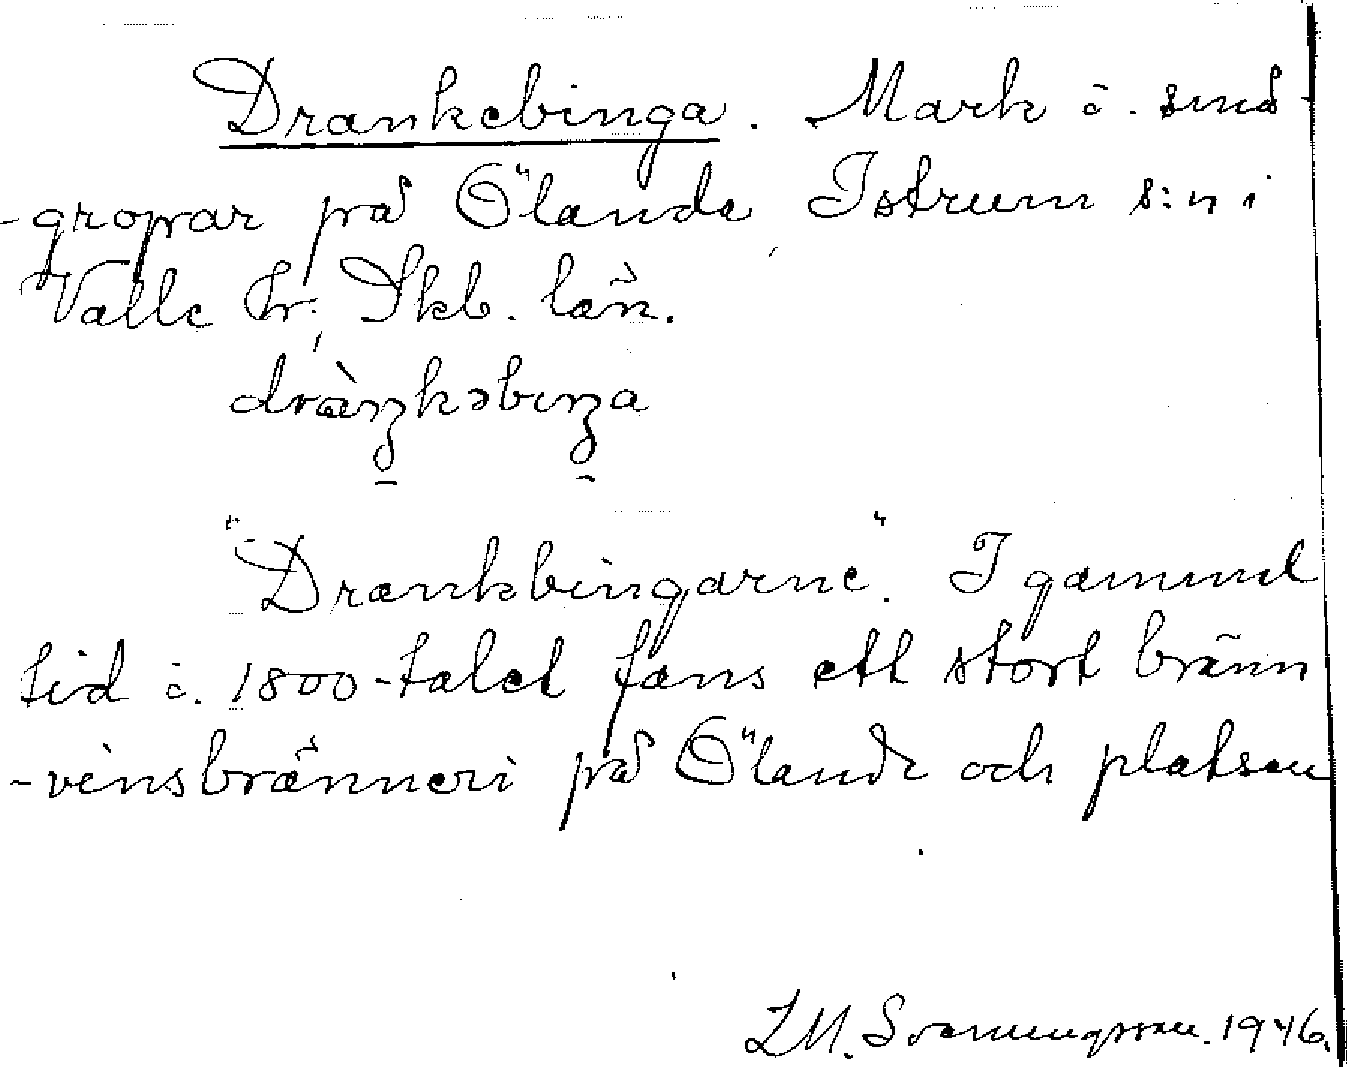 Drankebinga. Mark o. små
-gropar på Ölanda, Istrum s:n i
Valle hr. Skb. län.
dràŋkəbiŋa
"Drankbingarne". I gammel
tid o. 1800-talet fans ett stort bränn
-vinsbränneri på Ölanda och platsen
L.M. Svenungsson. 1946.